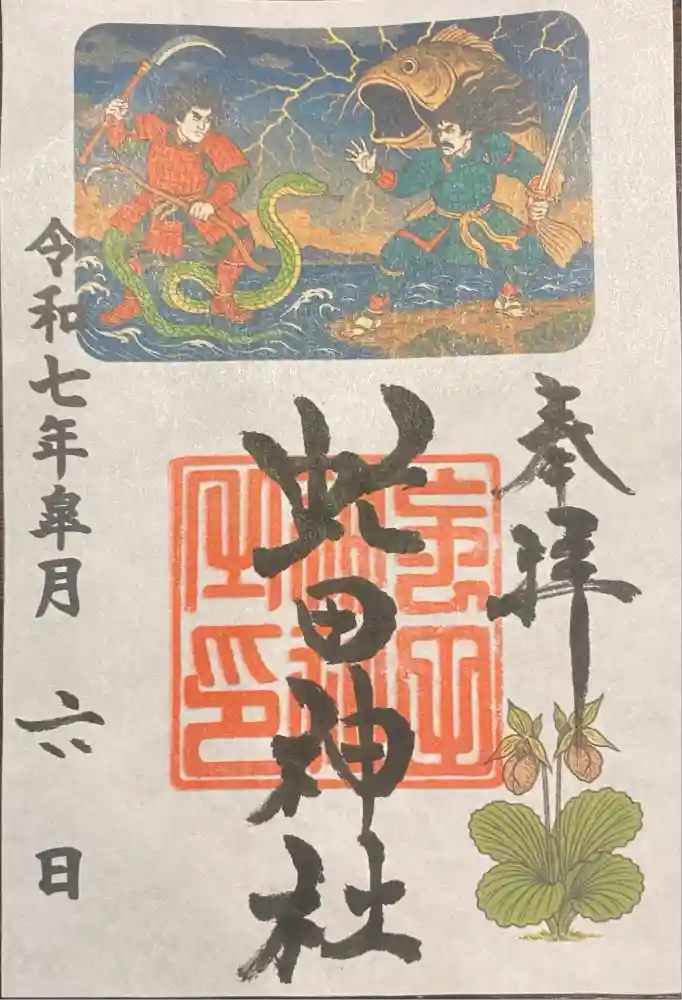 奉拝
此田神社
令和七年皐月 六 日